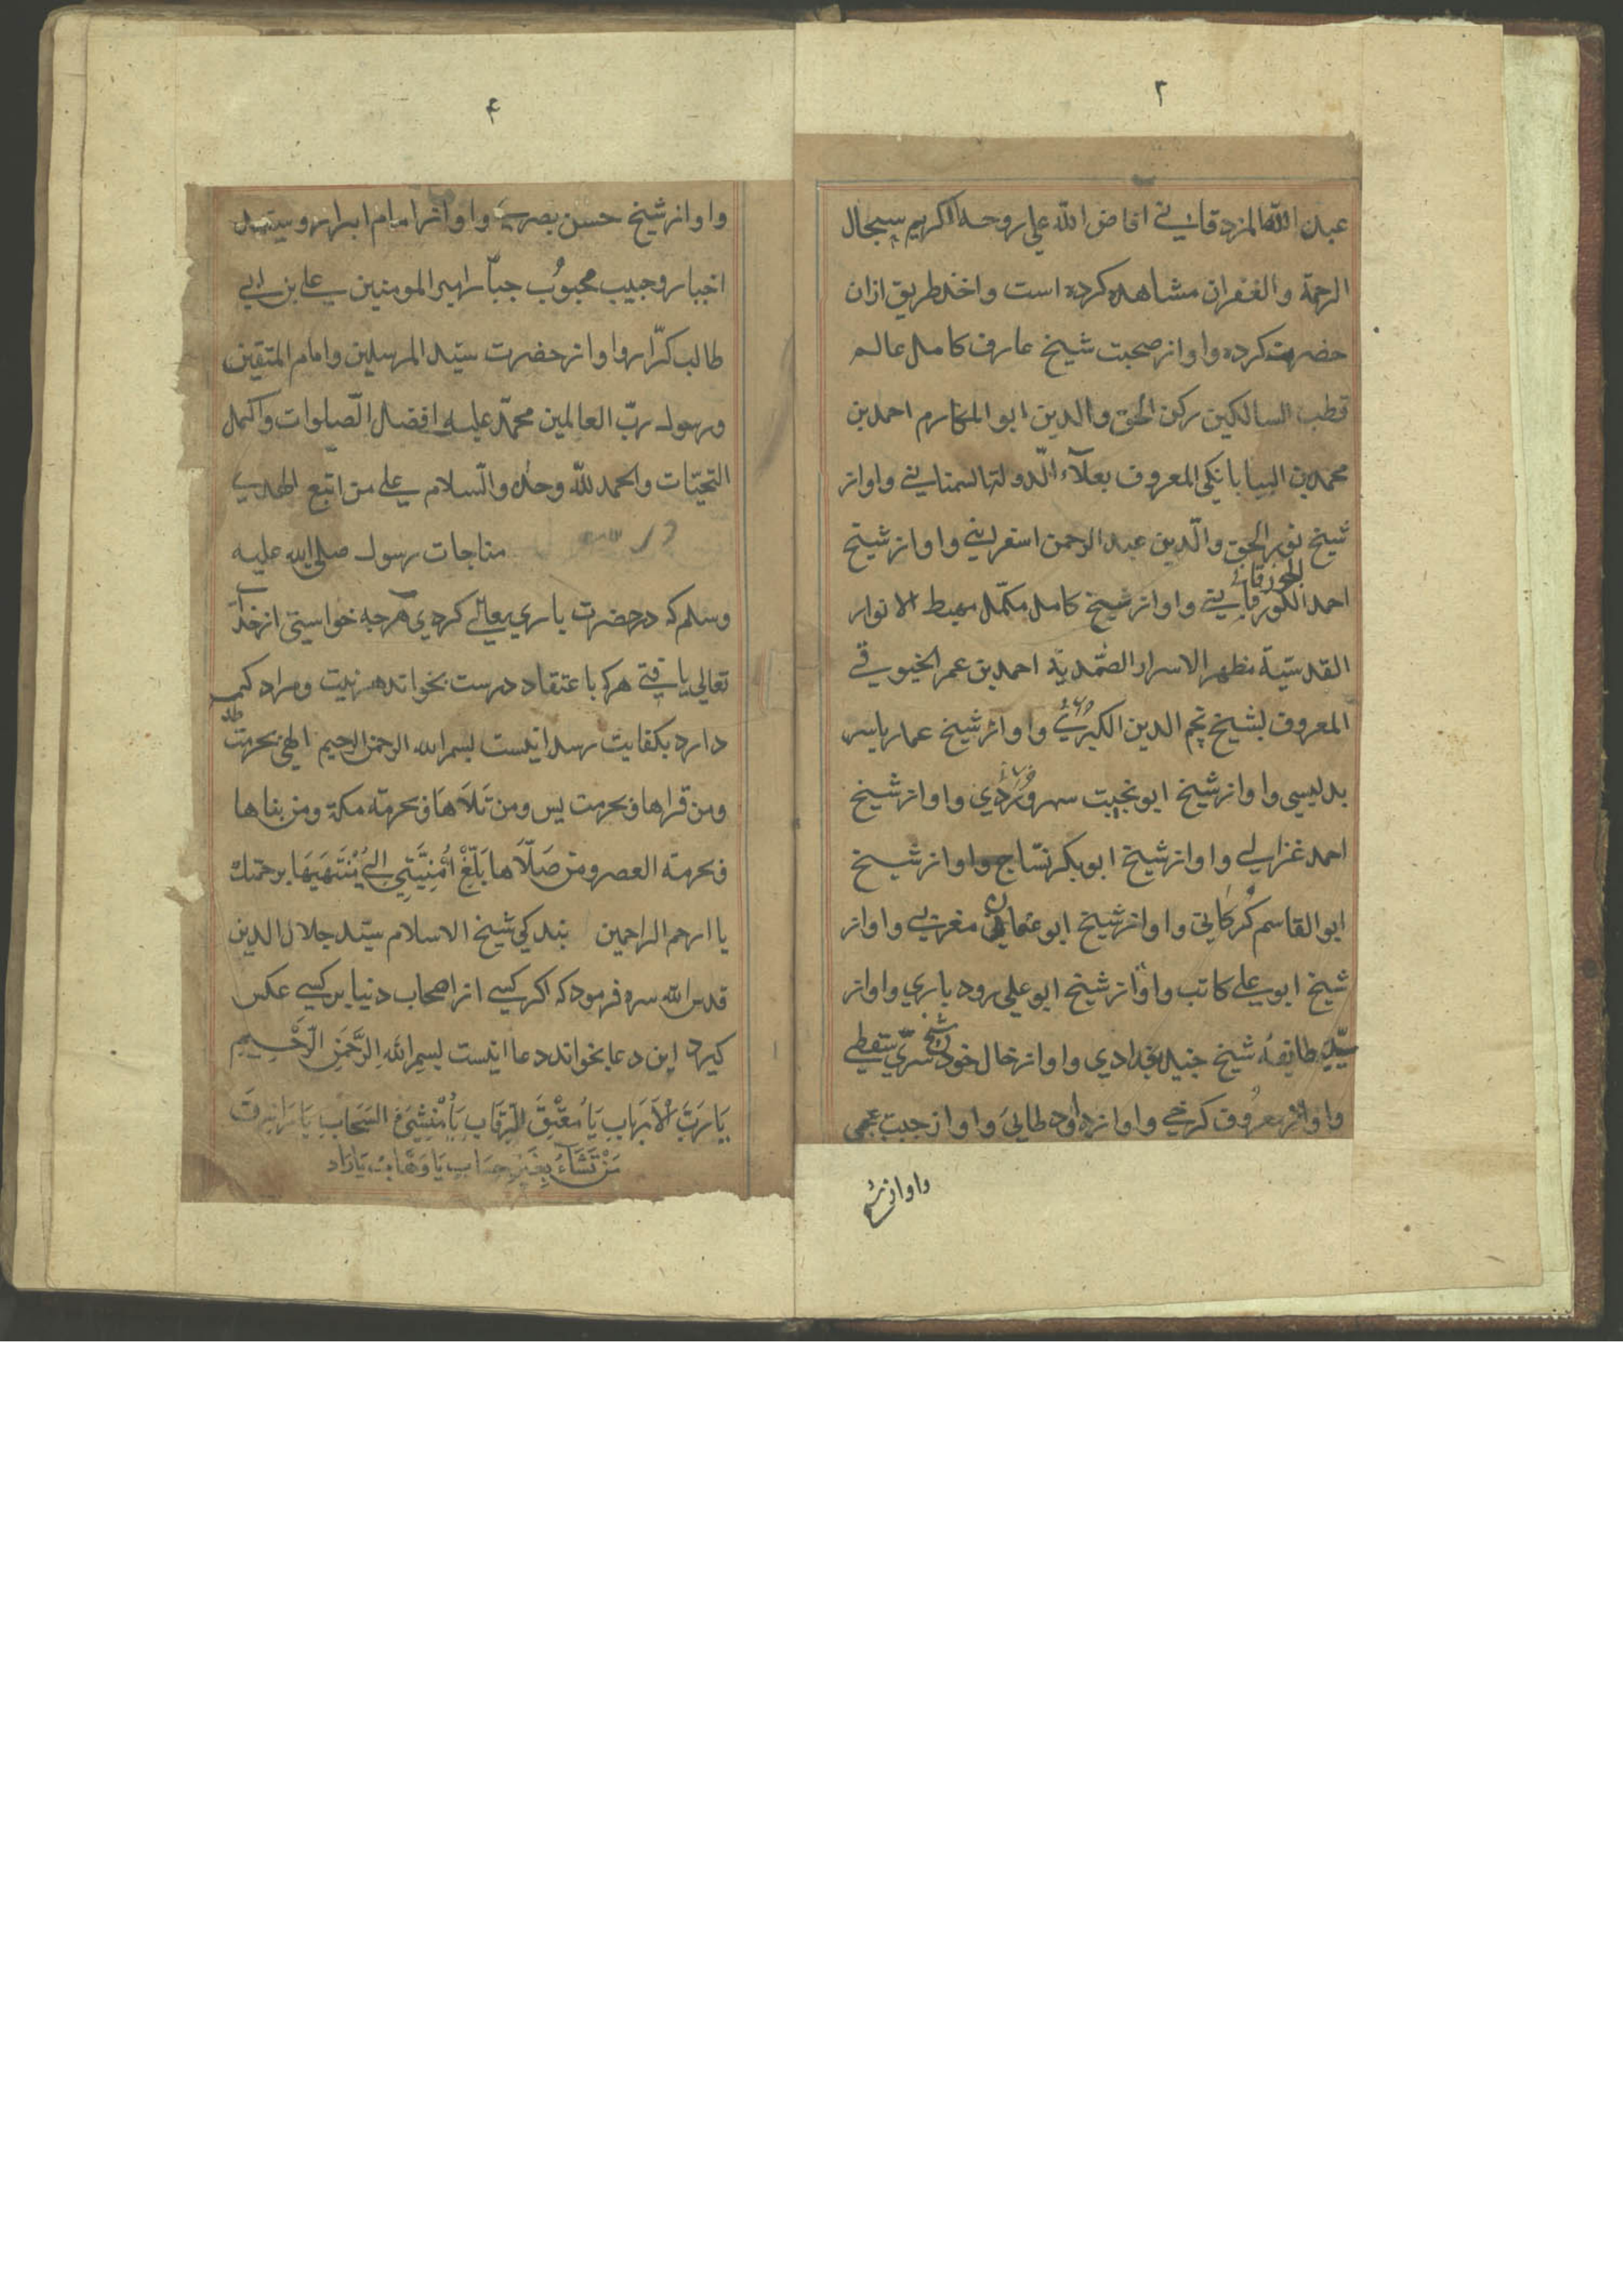 ۳
عبد الله المزدقانے افاض الله علی روحه الکریم سبحال
الرحمة والغفران مشاهده کرده است واخذ طریق ازان
حضرت کرده واو از صحبت شیخ عارف کامل عالم
قطب السالکین رکن الحق والدین ابو المکارم احمد بن
محمد بن البیابانکی المعروف بعلآء الدولة السمنانے واو از
شیخ نور الحق والدین عبد الرحمن اسفراینے واو از شیخ
احمد الکورقانے الجوزقانے واو از شیخ کامل مکمّل مهبط الانوار
القدسیّة مظهر الاسرار الصّمدیّة احمد بن عمر الخیوقے
المعروف بشیخ نجم الدین الکبریٰ واو از شیخ عمار یاسر
بدلیسی واو از شیخ ابو نجیب سهروردی واو از شیخ
احمد غزالے واو از شیخ ابو بکر نسّاج واو از شیخ
ابو القاسم کرکانی واو از شیخ ابو عثمان مغربے واو از
شیخ ابو علے کاتب واو از شیخ ابو علی رودباری واو از
سیّد طایفهٔ شیخ جنید بغدادی واو از خال خود شیخ سری سقطے
واو از معروف کرخے واو از داود طایی واو از حبیب عجمی
واو از شیخ
۴
واو از شیخ حسن بصرے واو از امام ابرار و سید
اخیار و حبیب محبوب جبّار امیر المومنین علے بن ابے
طالب کرّار واو از حضرت سیّد المرسلین وامام المتقین
ورسول ربّ العالمین محمّد علیه افضل الصّلوات واکمل
التحیّات والحمد لله وحده والسّلام علے من اتبع الهدے
مناجات رسول صلی الله علیه
وسلم که در حضرت باری تعالے کردی هرچه خواستی از خدآ
تعالی یافتے هرکه با اعتقاد درست بخواند هر نیت ومراد که
دارد بکفایت رسد اینست بسم الله الرحمن الرحیم الهی بحرمت طه
ومن قراها وبحرمت یس ومن تَلَاهَا وبحرمة مکة ومن بناها
وبحرمة العصر ومن صَلّاها بَلِّغْ اُمْنِیَّتِی اِلٰی مُنْتَهَیهَا برحمتك
یا ارحم الراحمین بندکی شیخ الاسلام سیّد جلال الدین
قدس الله سره فرمود که اکر کسے از اصحاب دنیا بر کسے عکس
کیرد این دعا بخواند دعا اینست بسم الله الرَّحمَنِ الرَّحِیمِ
یَا رَبَّ الْاَرْبَابِ یَا مُعْتِقَ الرِّقَابِ یَا مُنْشِیَٔ السَّحَابِ یَا رَازِقَ
مَنْ تَشَآءُ بِغَیْرِ حِسَابٍ یَا وَهَّابُ یَا رَاد